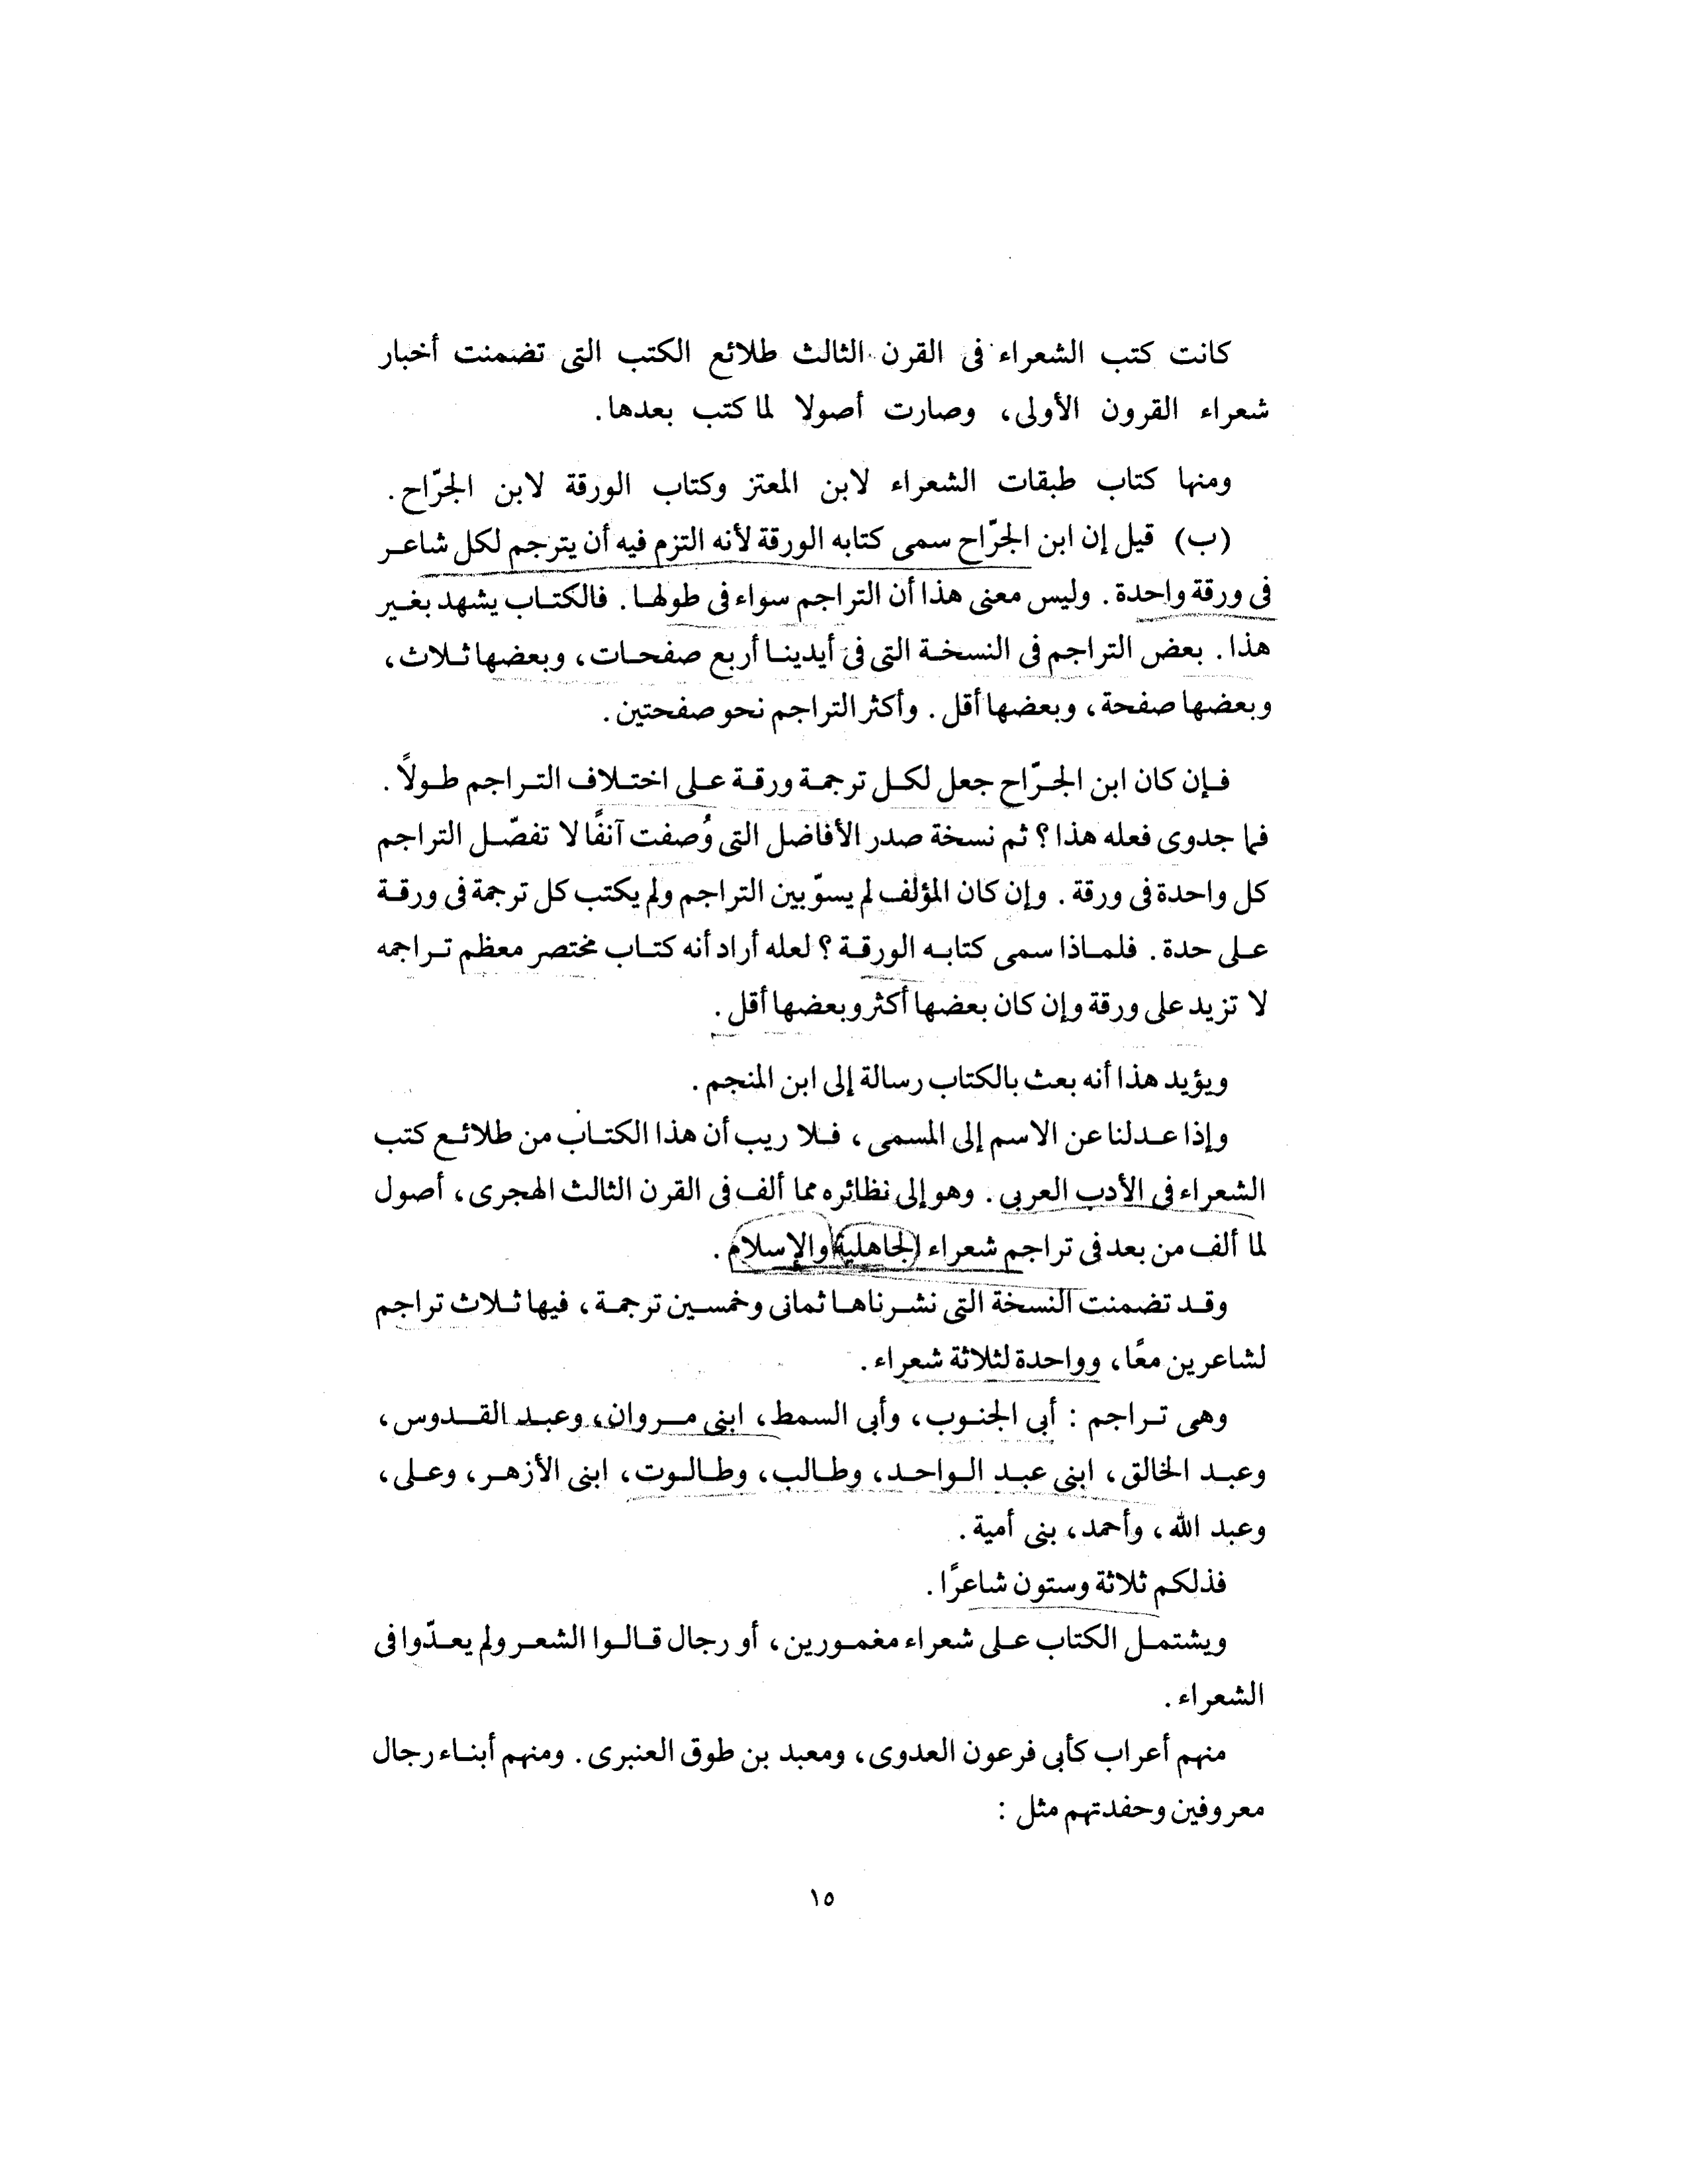 كانت كتب الشعراء فى القرن الثالث طلائع الكتب التى تضمنت أخبار
شعراء القرون الأولى، وصارت أصولا لما كتب بعدها.
ومنها كتاب طبقات الشعراء لابن المعتز وكتاب الورقة لابن الجرّاح.
(ب) قيل إن ابن الجرّاح سمى كتابه الورقة لأنه التزم فيه أن يترجم لكل شاعر
فى ورقة واحدة. وليس معنى هذا أن التراجم سواء فى طولها. فالكتاب يشهد بغير
هذا. بعض التراجم فى النسخة التى فى أيدينا أربع صفحات، وبعضها ثلاث،
وبعضها صفحة، وبعضها أقل. وأكثر التراجم نحو صفحتين.
فإن كان ابن الجرّاح جعل لكل ترجمة ورقة على اختلاف التراجم طولاً.
فما جدوى فعله هذا؟ ثم نسخة صدر الأفاضل التى وُصفت آنفًا لا تفصّل التراجم
كل واحدة فى ورقة. وإن كان المؤلف لم يسوّ بين التراجم ولم يكتب كل ترجمة فى ورقة
على حدة. فلماذا سمى كتابه الورقة؟ لعله أراد أنه كتاب مختصر معظم تراجمه
لا تزيد على ورقة وإن كان بعضها أكثر وبعضها أقل.
ويؤيد هذا أنه بعث بالكتاب رسالة إلى ابن المنجم.
وإذا عدلنا عن الاسم إلى المسمى، فلا ريب أن هذا الكتاب من طلائع كتب
الشعراء فى الأدب العربى. وهو إلى نظائره مما ألف فى القرن الثالث الهجرى، أصول
لما ألف من بعد فى تراجم شعراء الجاهلية والإسلام.
وقد تضمنت النسخة التى نشرناها ثمانى وخمسين ترجمة، فيها ثلاث تراجم
لشاعرين معًا، وواحدة لثلاثة شعراء.
وهى تراجم : أبى الجنوب، وأبى السمط، ابنى مروان، وعبد القدوس،
وعبد الخالق، ابنى عبد الواحد، وطالب، وطالوت، ابنى الأزهر، وعلى،
وعبد الله، وأحمد، بنى أمية.
فذلكم ثلاثة وستون شاعرًا.
ويشتمل الكتاب على شعراء مغمورين، أو رجال قالوا الشعر ولم يعدّوا فى
الشعراء.
منهم أعراب كأبى فرعون العدوى، ومعبد بن طوق العنبرى. ومنهم أبناء رجال
معروفين وحفدتهم مثل :
١٥